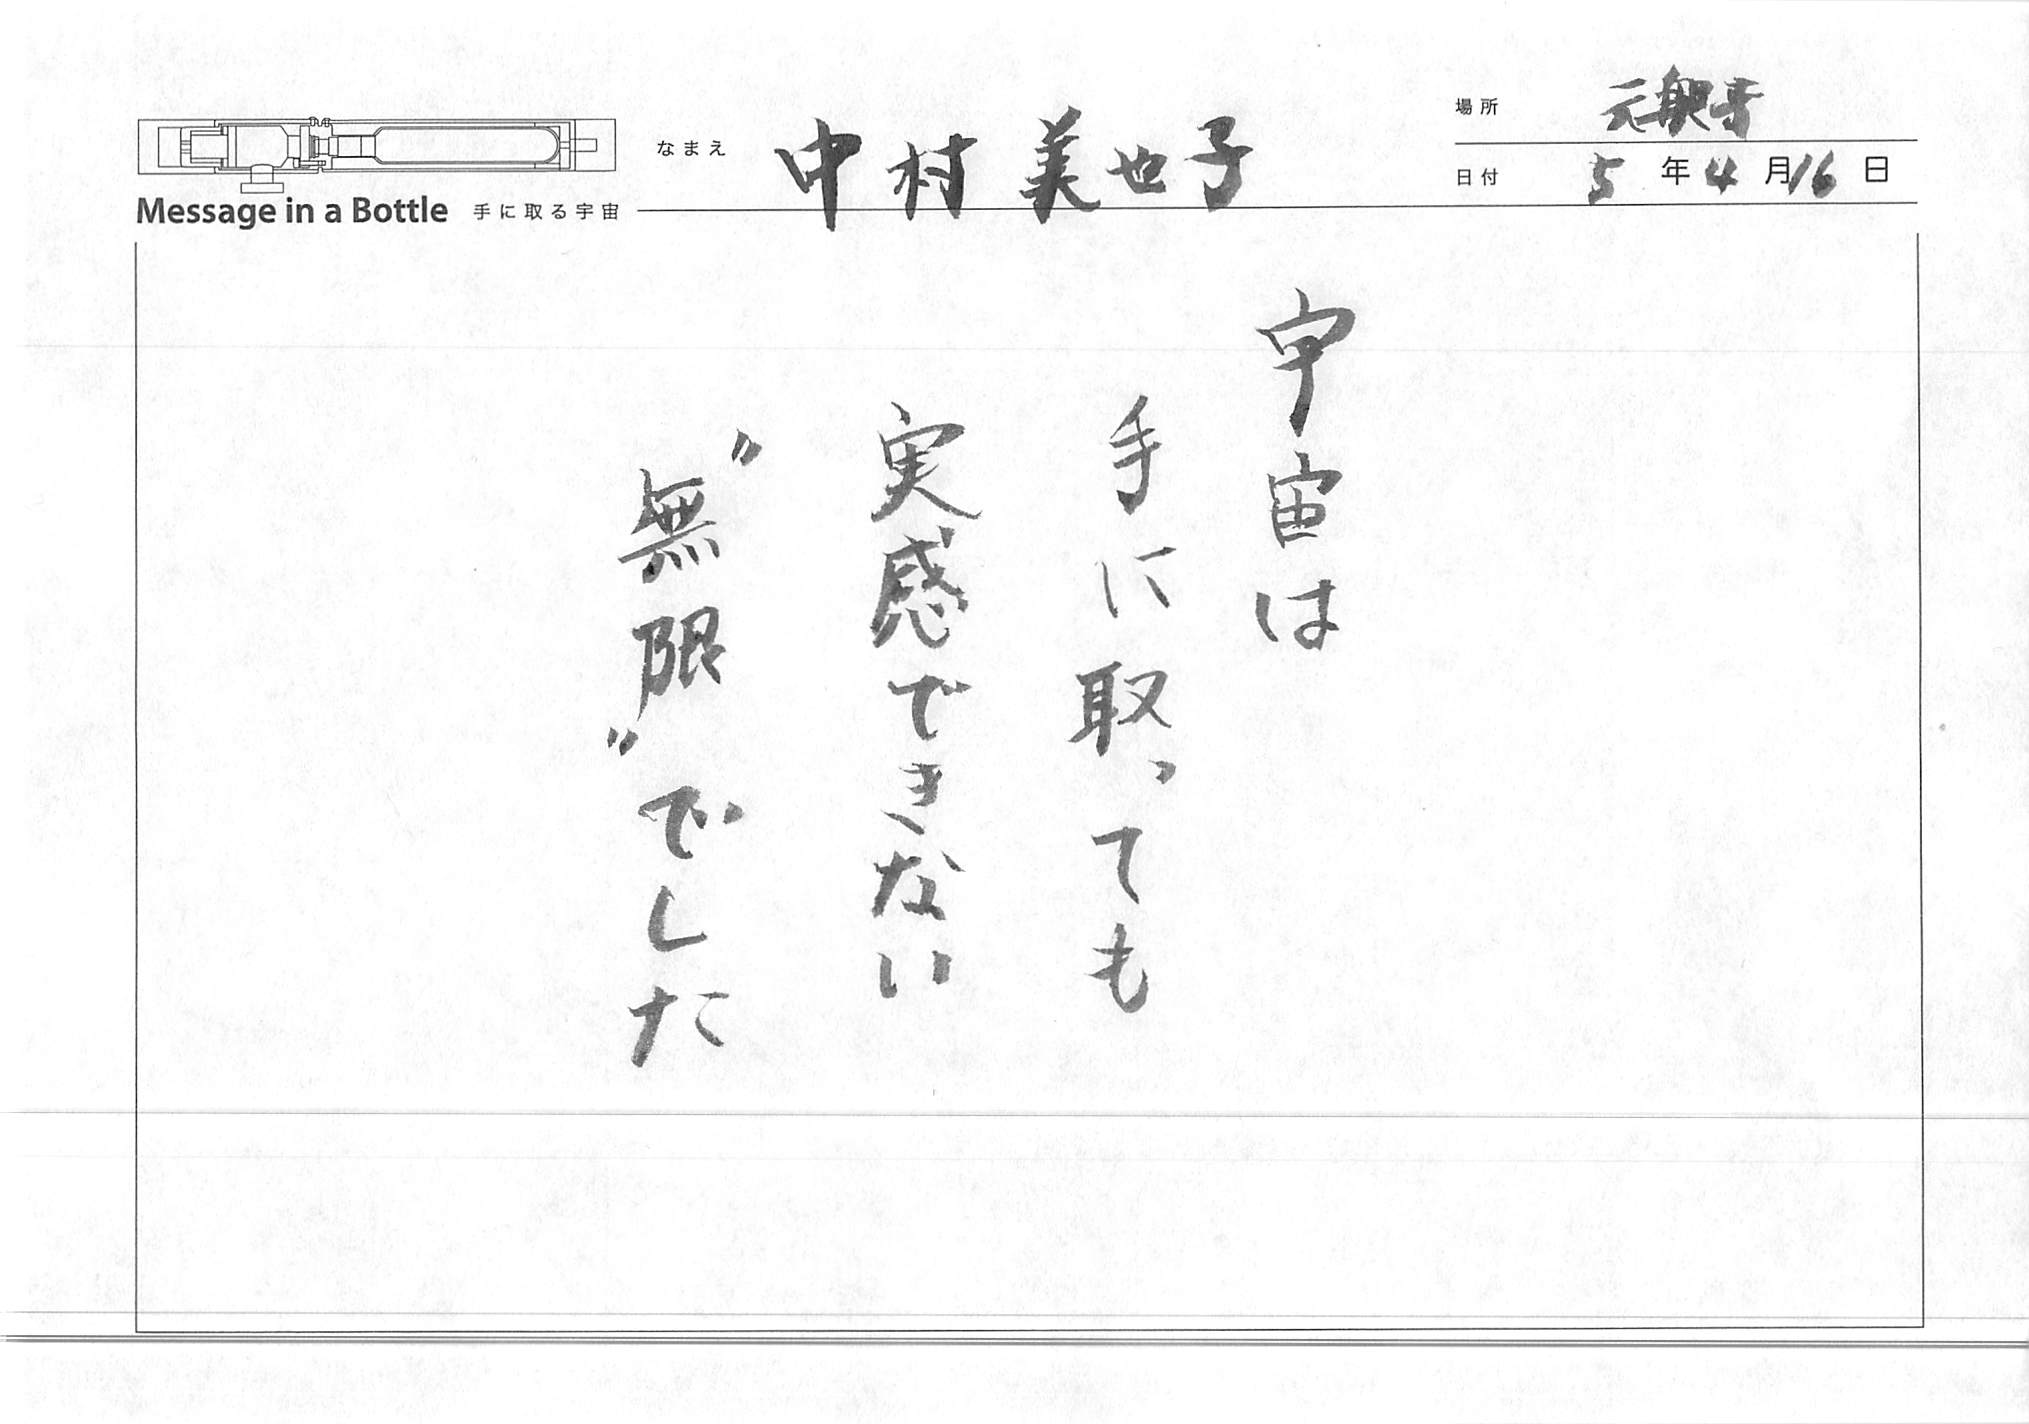 Message in a Bottle 手に取る宇宙
なまえ 中村 美也子
場所 元興寺
日付 5年4月16日
宇宙は
手に取っても
実感できない
"無限"でした